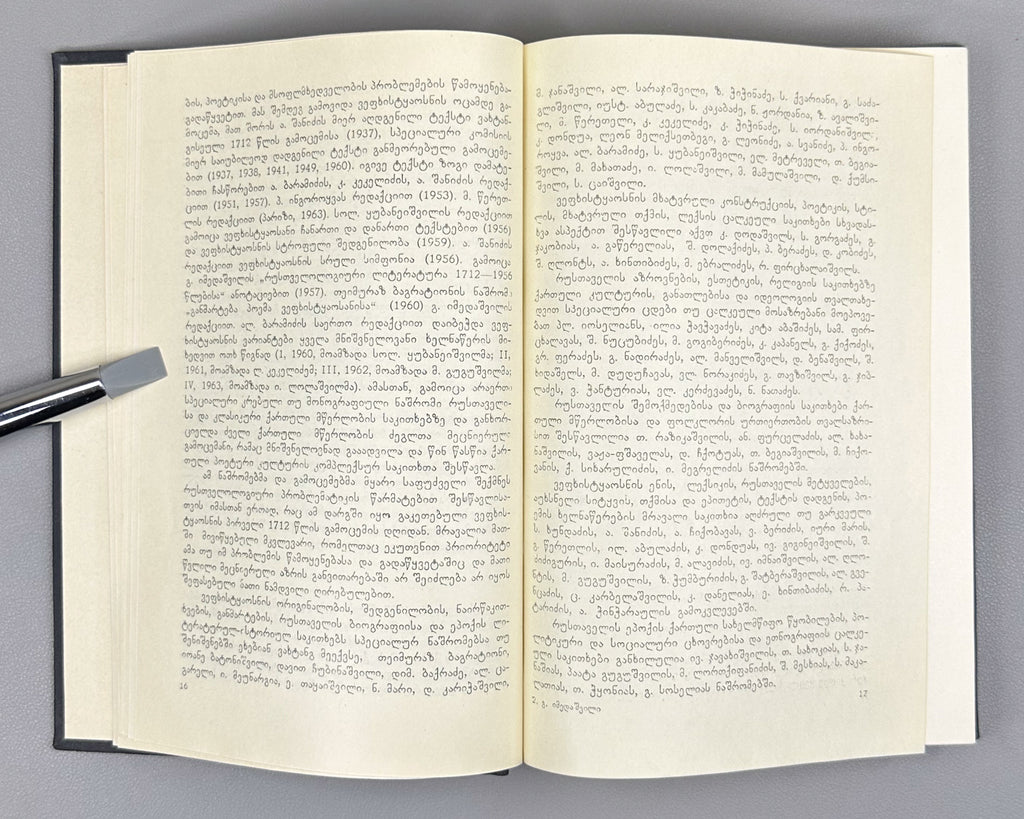 ბის, პოეტიკისა და მსოფლმხედველობის პრობლემების წამოყენება-
გადაწყვეტით. მას შემდეგ გამოვიდა ვეფხისტყაოსნის ოცამდე გა-
მოცემა, მათ შორის ა. შანიძის მიერ აღდგენილი ტექსტი ვახტან-
გისეული 1712 წლის გამოცემისა (1937), სპეციალური კომისიის
მიერ საიუბილეოდ დადგენილი ტექსტი განმეორებული გამოცემე-
ბით (1937, 1938, 1941, 1949, 1960). იგივე ტექსტი ზოგი დამატე-
ბითი ჩასწორებით ა. ბარამიძის, კ. კეკელიძის, ა. შანიძის რედაქ-
ციით (1951, 1957). პ. ინგოროყვას რედაქციით (1953). მ. წერეთ-
ლის რედაქციით (პარიზი, 1963). სოლ. ყუბანეიშვილის რედაქციით
გამოიცა ვეფხისტყაოსანი ჩანართი და დანართი ტექსტებით (1956)
და ვეფხისტყაოსნის სტროფული შედგენილობა (1959). ა. შანიძის
რედაქციით ვეფხისტყაოსნის სრული სიმფონია (1956). გამოიცა
გ. იმედაშვილის „რუსთველოლოგიური ლიტერატურა 1712—1956
წლებისა“ ანოტაციებით (1957). თეიმურაზ ბაგრატიონის ნაშრომი
„განმარტება პოემა ვეფხისტყაოსანისა“ (1960) გ. იმედაშვილის
რედაქციით. ალ. ბარამიძის საერთო რედაქციით დაიბეჭდა ვეფ-
ხისტყაოსნის ვარიანტები ყველა მნიშვნელოვანი ხელნაწერის მი-
ხედვით ოთხ წიგნად (I, 1960, მოამზადა სოლ. ყუბანეიშვილმა; II,
1961, მოამზადა ლ. კეკელიძემ; III, 1962, მოამზადა მ. გუგუშვილმა;
IV, 1963, მოამზადა ი. ლოლაშვილმა). ამასთან, გამოიცა არაერთი
სპეციალური კრებული თუ მონოგრაფიული ნაშრომი რუსთაველი-
სა და კლასიკური ქართული მწერლობის საკითხებზე და განხორ-
ციელდა ძველი ქართული მწერლობის ძეგლთა მეცნიერული
გამოცემანი, რამაც მნიშვნელოვნად გააადვილა და წინ წასწია ქარ-
თული პოეტური კულტურის კომპლექსურ საკითხთა შესწავლა.
ამ ნაშრომებმა და გამოცემებმა მყარი საფუძველი შექმნეს
რუსთველოლოგიური პრობლემატიკის წარმატებით შესწავლისა-
თვის იმასთან ერთად, რაც ამ დარგში იყო გაკეთებული ვეფხის-
ტყაოსნის პირველი 1712 წლის გამოცემის დღიდან. მრავალია მათ-
ში მივიწყებული მკვლევარი, რომელთაც ეკუთვნით პრიორიტეტი
ამა თუ იმ პრობლემის წამოყენებასა და გადაწყვეტაშიც და მათი
წვლილი მეცნიერული აზრის განვითარებაში არ შეიძლება არ იყოს
შეფასებული მათი ნამდვილი ღირებულებით.
ვეფხისტყაოსნის ორიგინალობის, შედგენილობის, ნაირწაკით-
ხვების, განმარტების, რუსთაველის ბიოგრაფიისა და ეპოქის ლი-
ტერატურულ-ისტორიულ საკითხებს სპეციალურ ნაშრომებსა თუ
შენიშვნებში ეხებიან ვახტანგ მეექვსე, თეიმურაზ ბაგრატიონი,
იოანე ბატონიშვილი, დავით ჩუბინაშვილი, დიმ. ბაქრაძე, ალ. ცა-
გარელი, ი. მეუნარგია, ე. თაყაიშვილი, ნ. მარი, დ. კარიჭაშვილი,
16
მ. ჯანაშვილი, ალ. სარაჯიშვილი, ზ. ჭიჭინაძე, ს. ქვარიანი, გ. საძა-
გლიშვილი, იუსტ. აბულაძე, ს. კაკაბაძე, ნ. ჟორდანია, ზ. ავალიშვი-
ლი, მ. წერეთელი, კ. კეკელიძე, კ. ჭიჭინაძე, ს. იორდანიშვილი,
კ. დონდუა, ლეონ მელიქსეთბეგი, გ. ლეონიძე, ა. სვანიძე, პ. ინგო-
როყვა, ალ. ბარამიძე, ს. ყუბანეიშვილი, ელ. მეტრეველი, თ. ბეგია-
შვილი, მ. მახათაძე, ი. ლოლაშვილი, მ. მამულაშვილი, დ. ქუმსი-
შვილი, ს. ცაიშვილი.
ვეფხისტყაოსნის მხატვრული კონსტრუქციის, პოეტიკის, სტი-
ლის, მხატვრული თქმის, ლექსის ცალკეული საკითხები სხვადას-
ხვა ასპექტით შესწავლილი აქვთ კ. დოდაშვილს, ს. გორგაძეს, გ.
ჯაკობიას, ა. გაწერელიას, შ. დოლაქიძეს, პ. ბერაძეს, დ. კობიძეს,
შ. ღლონტს, ა. ხინთიბიძეს, მ. ებრალიძეს, რ. ფირცხალაიშვილს.
რუსთაველის აზროვნების, ესთეტიკის, რელიგიის საკითხებზე
ქართული კულტურის, განათლებისა და იდეოლოგიის თვალთახე-
დვით სპეციალური ცდები თუ ცალკეული მოსაზრებანი მოეპოვე-
ბათ პლ. იოსელიანს, ილია ჭავჭავაძეს, კიტა აბაშიძეს, სამ. ფირ-
ცხალავას, შ. ნუცუბიძეს, მ. გოგიბერიძეს, კ. კაპანელს, გ. ქიქოძეს,
გრ. ფერაძეს, გ. ნადირაძეს, ალ. მანველიშვილს, დ. ბენაშვილს, შ.
ხიდაშელს, მ. დუდუჩავას, ვლ. ნორაკიძეს, გ. თავზიშვილს, გ. ჯიბ-
ლაძეს, ვ. ჭანტურიას, ვლ. კერძევაძეს, ნ. ნათაძეს.
რუსთაველის შემოქმედებისა და ბიოგრაფიის საკითხები ქარ-
თული მწერლობისა და ფოლკლორის ურთიერთობის თვალსაზრი-
სით შესწავლილია თ. რაზიკაშვილის, ან. ფურცელაძის, ალ. ხახა-
ნაშვილის, ვაჟა-ფშაველას, დ. ჩქოტუას, თ. ბეგიაშვილის, მ. ჩიქო-
ვანის, ქ. სიხარულიძის, ი. მეგრელიძის ნაშრომებში.
ვეფხისტყაოსნის ენის, ლექსიკის, რუსთაველის მეტყველების,
აუხსნელი სიტყვის, თქმისა და ეპითეტის, ტექსტის დადგენის, პო-
ემის ხელნაწერების მრავალი საკითხია აღძრული თუ გარკვეული
ს. ხუნდაძის, ა. შანიძის, ა. ჩიქობავას, ვ. ბერიძის, იური მარის,
გ. წერეთლის, ილ. აბულაძის, კ. დონდუას, ივ. გიგინეიშვილის, შ.
ძიძიგურის, ი. მაისურაძის, მ. ალავიძის, ივ. იმნაიშვილის, ალ. ღლო-
ნტის, მ. გუგუშვილის, ზ. ჭუმბურიძის, გ. შატბერაშვილის, ალ. გვე-
ნცაძის, ც. კარბელაშვილის, კ. დანელიას, ე. ხინთიბიძის, რ. პა-
ტარიძის, ა. ჭინჭარაულის გამოკვლევებში.
რუსთაველის ეპოქის ქართული სახელმწიფო წყობილების, პო-
ლიტიკური და სოციალური ცხოვრებისა და ეთნოგრაფიის ცალკე-
ული საკითხები განხილულია ივ. ჯავახიშვილის, თ. სახოკიას, ს. ჯა-
ნაშიას, პაატა გუგუშვილის, მ. ლორთქიფანიძის, შ. მესხიას, ს. მაკა-
ლათიას, თ. ჭყონიას, გ. სოსელიას ნაშრომებში.
2. გ. იმედაშვილი
17